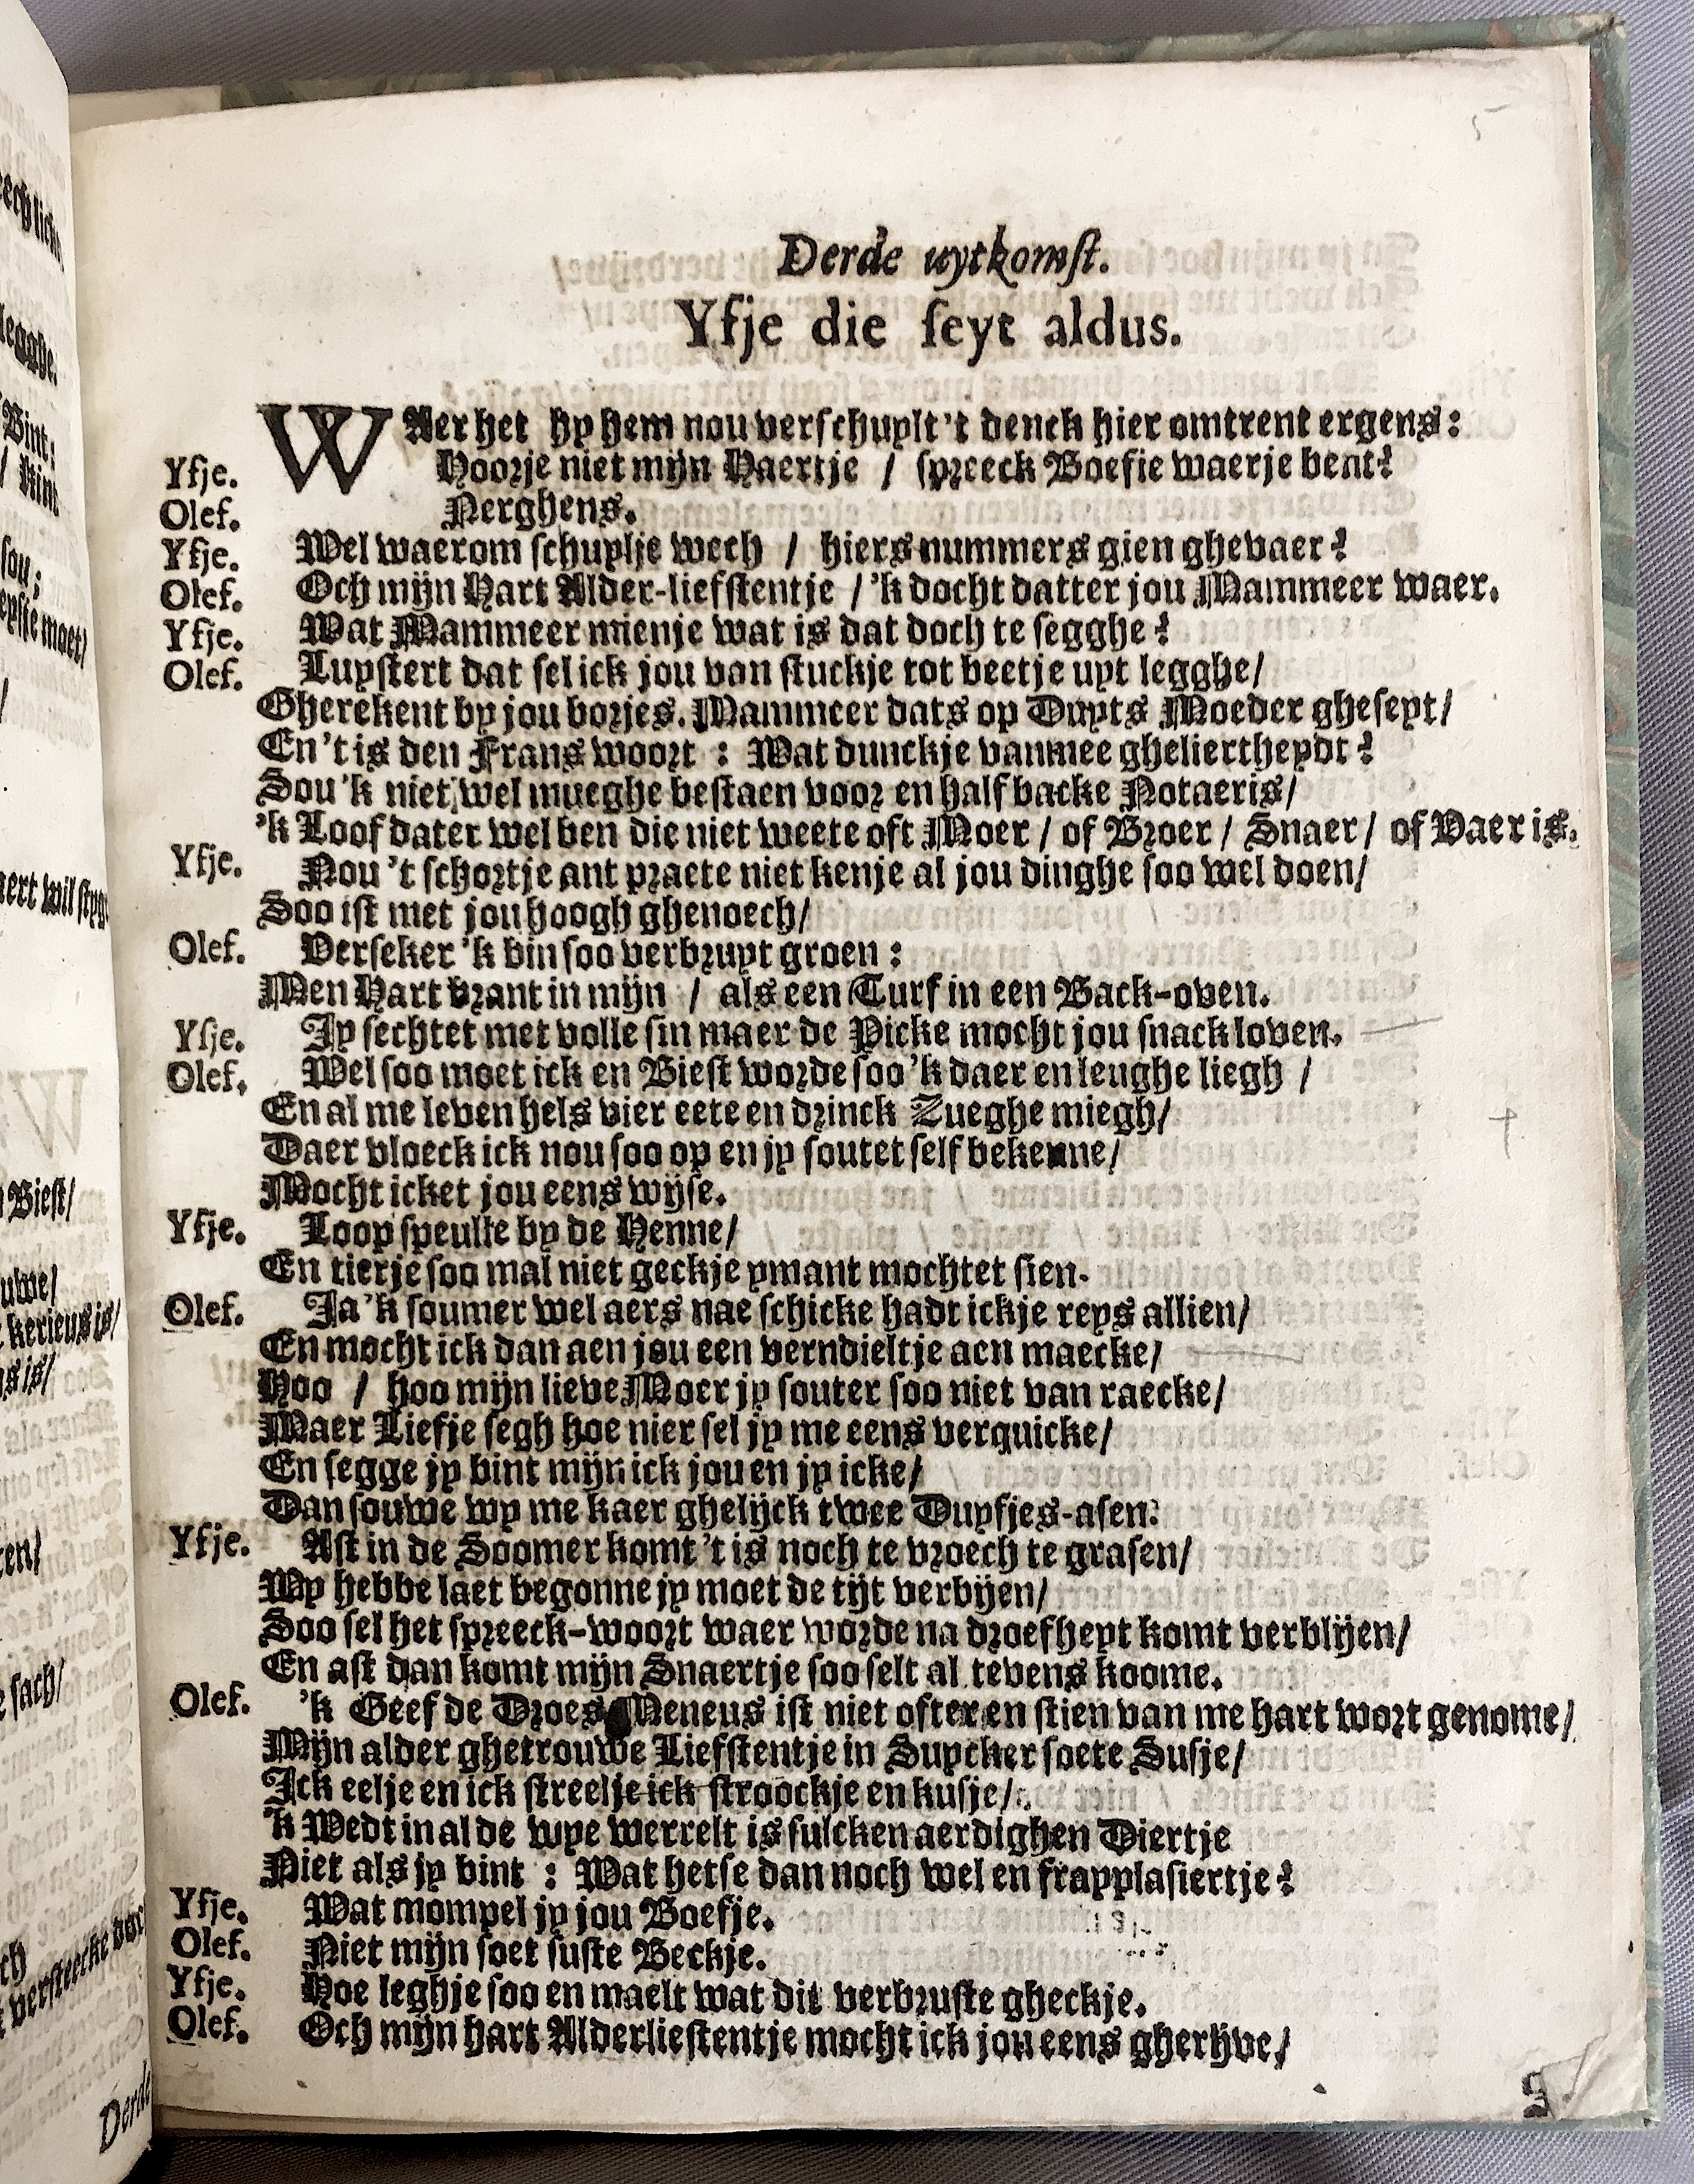 5
Derde uytkomst.
Yfje die seyt aldus.
WAer het hy hem nou verschuylt 't denck hier omtrent ergens:
Yfje. Hoorje niet mijn Haertje / spreeck Boefie waerje bent?
Olef. Nerghens.
Yfje. Wel waerom schuylje wech / hiers nummers gien ghevaer?
Olef. Och mijn Hart Alder-liefstentje / 'k docht datter jou Mammeer waer.
Yfje. Wat Mammeer mienje wat is dat doch te segghe?
Olef. Luystert dat sel ick jou van stuckje tot beetje uyt legghe/
Gherekent by jou borjes. Mammeer dats op Duyts Moeder gheseyt/
En 't is den Frans woort : Wat dunckje vanmee gheliertheydt?
Sou 'k niet wel mueghe bestaen voor en half backe Notaeris/
'k Loof dater wel ben die niet weete oft Moer / of Broer / Snaer / of Vaer is.
Yfje. Nou 't schortje ant praete niet kenje al jou dinghe soo wel doen/
Soo ist met jou hoogh ghenoech/
Olef. Verseker 'k bin soo verbruyt groen :
Men Hart brant in mijn / als een Turf in een Back-oven.
Yfje. Jy sechtet met volle sin maer de Picke mocht jou snack loven.
Olef. Wel soo moet ick en Biest worde soo 'k daer en leughe liegh /
En al me leven hels vier eete en drinck Zueghe miegh/
Daer vloeck ick nou soo op en jy soutet self bekenne/
Mocht icket jou eens wijse.
Yfje. Loop speulte by de Henne/
En tierje soo mal niet geckje ymant mochtet sien.
Olef. Ja 'k soumer wel aers nae schicke hadt ickje reys allien/
En mocht ick dan aen jou een verndieltje aen maecke/
Hoo / hoo mijn lieve Moer jy souter soo niet van raecke/
Maer Liefje segh hoe nier sel jy me eens verquicke/
En segge jy bint mijn ick jou en jy icke/
Dan souwe wy me kaer ghelijck twee Duyfjes-asen.
Yfje. Ast in de Soomer komt 't is noch te vroech te grasen/
Wy hebbe laet begonne jy moet de tijt verbijen/
Soo sel het spreeck-woort waer worde na droefheyt komt verblijen/
En ast dan komt mijn Snaertje soo selt al tevens koome.
Olef. 'k Geef de Droes Meneus ist niet ofter en stien van me hart wort genome/
Mijn alder ghetrouwe Liefstentje in Suycker soete Susje/
Ick eelje en ick streelje ick stroockje en kusje/
'k Wedt in al de wye werrelt is sulcken aerdighen Diertje
Niet als jy bint : Wat hetse dan noch wel en frapplasiertje?
Yfje. Wat mompel jy jou Boefje.
Olef. Niet mijn soet suste Beckje.
Yfje. Hoe leghje soo en maelt wat dit verbruste gheckje.
Olef. Och mijn hart Alderliestentje mocht ick jou eens gherijve/